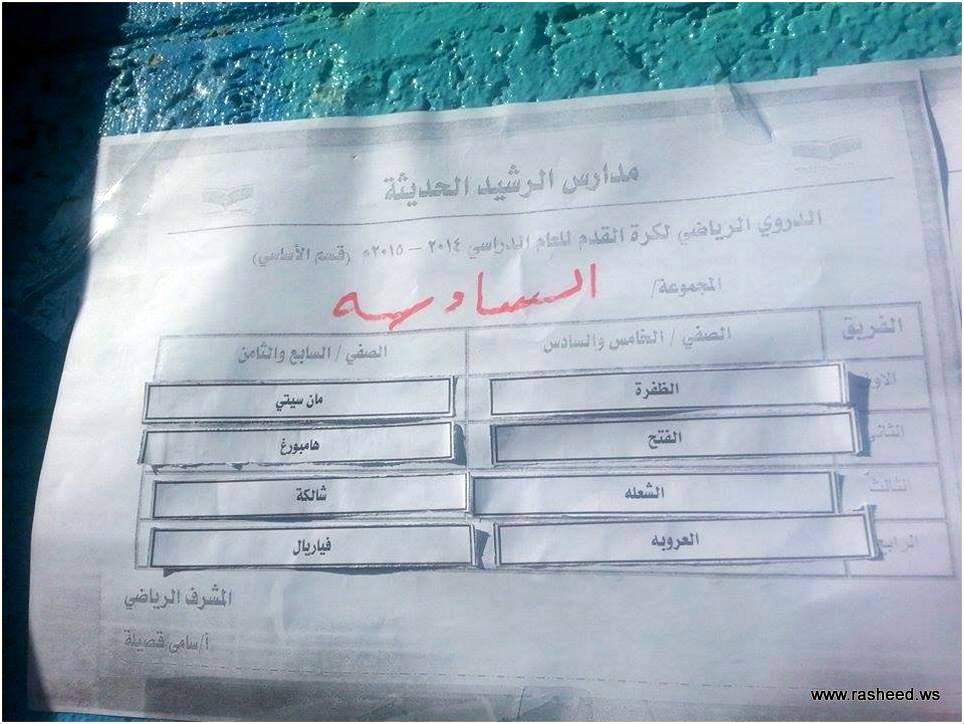 مدارس الرشيد الحديثة
الدروي الرياضي لكرة القدم للعام الدراسي ٢٠١٤ - ٢٠١٥م (قسم الأساسي)
المجموعة/ السادسه
الفريق الصفي / الخامس والسادس الصفي / السابع والثامن
الاول الظفرة مان سيتي
الثاني الفتح هامبورغ
الثالث الشعله شالكة
الرابع العروبه فياريال
المشرف الرياضي
أ/سامى قصيلة
www.rasheed.ws